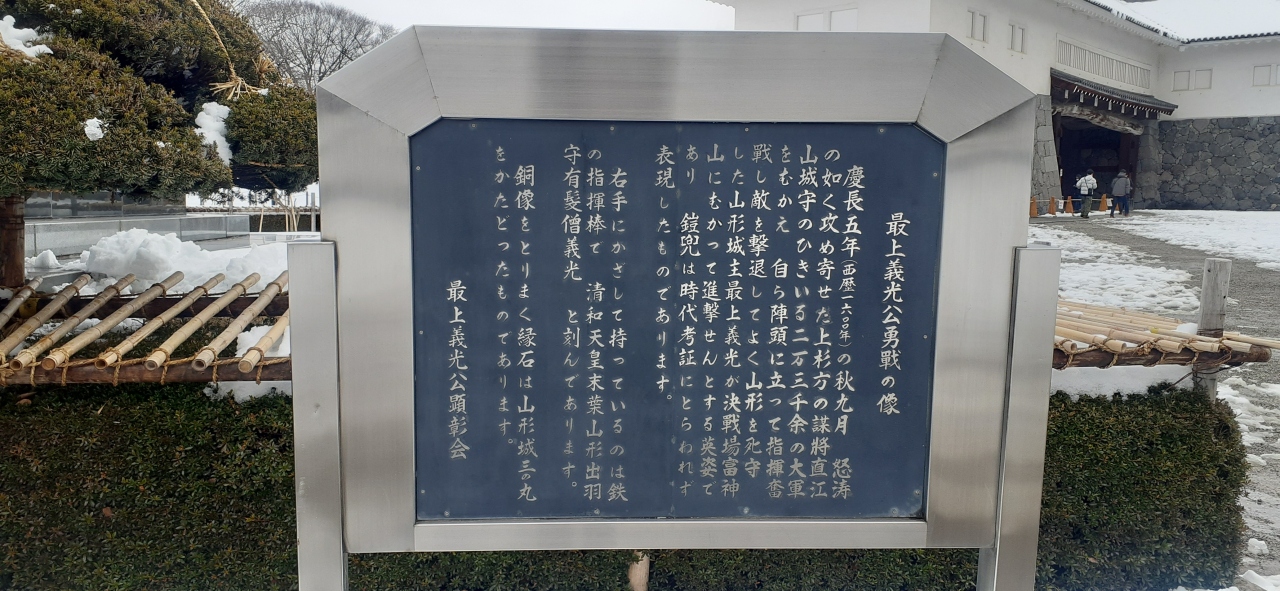 最上義光公勇戰の像
慶長五年(西歴一六〇〇年)の秋九月　怒涛
の如く攻め寄せた上杉方の謀将直江
山城守のひきいる二万三千余の大軍
をむかえ　自ら陣頭に立って指揮奮
戰し敵を撃退してよく山形を死守
した山形城主最上義光が決戰場富神
山にむかって進撃せんとする英姿で
あり　鎧兜は時代考証にとらわれず
表現したものであります。
右手にかざして持っているのは鉄
の指揮棒で　清和天皇末葉山形出羽
守有髪僧義光　と刻んであります。
銅像をとりまく縁石は山形城三の丸
をかたどったものであります。
最上義光公顕彰会